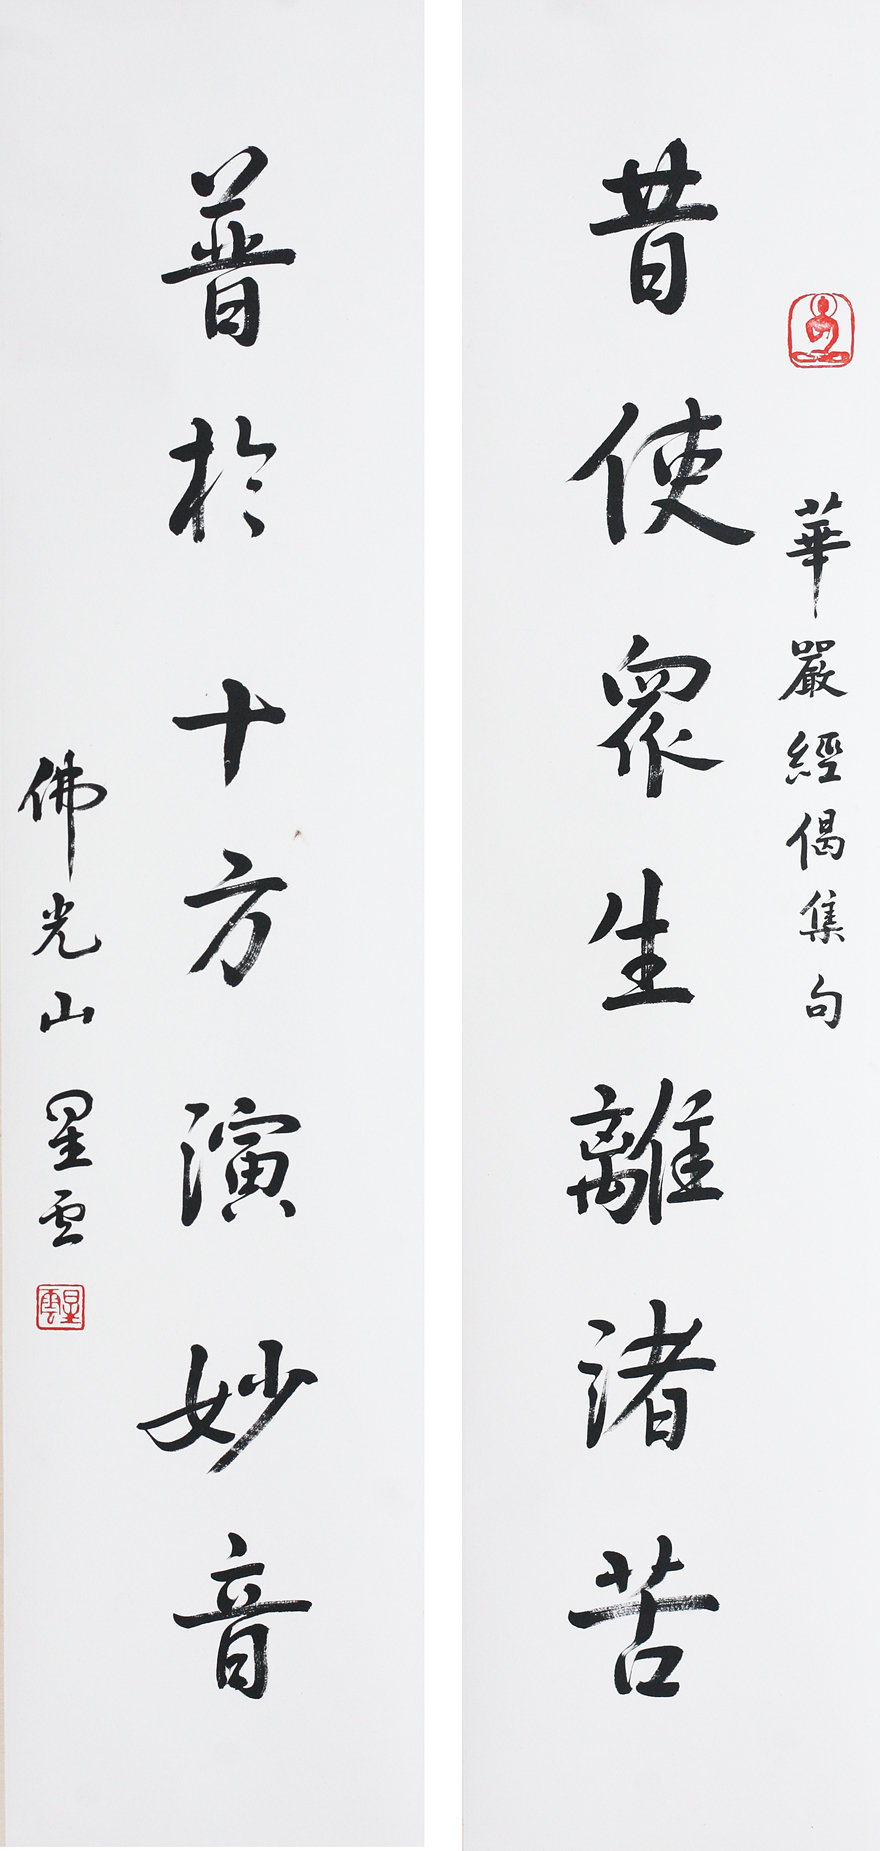 華嚴經偈集句
昔使眾生離諸苦
普於十方演妙音
佛光山 星雲
星雲